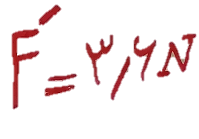 F́ = ۳/۶ N